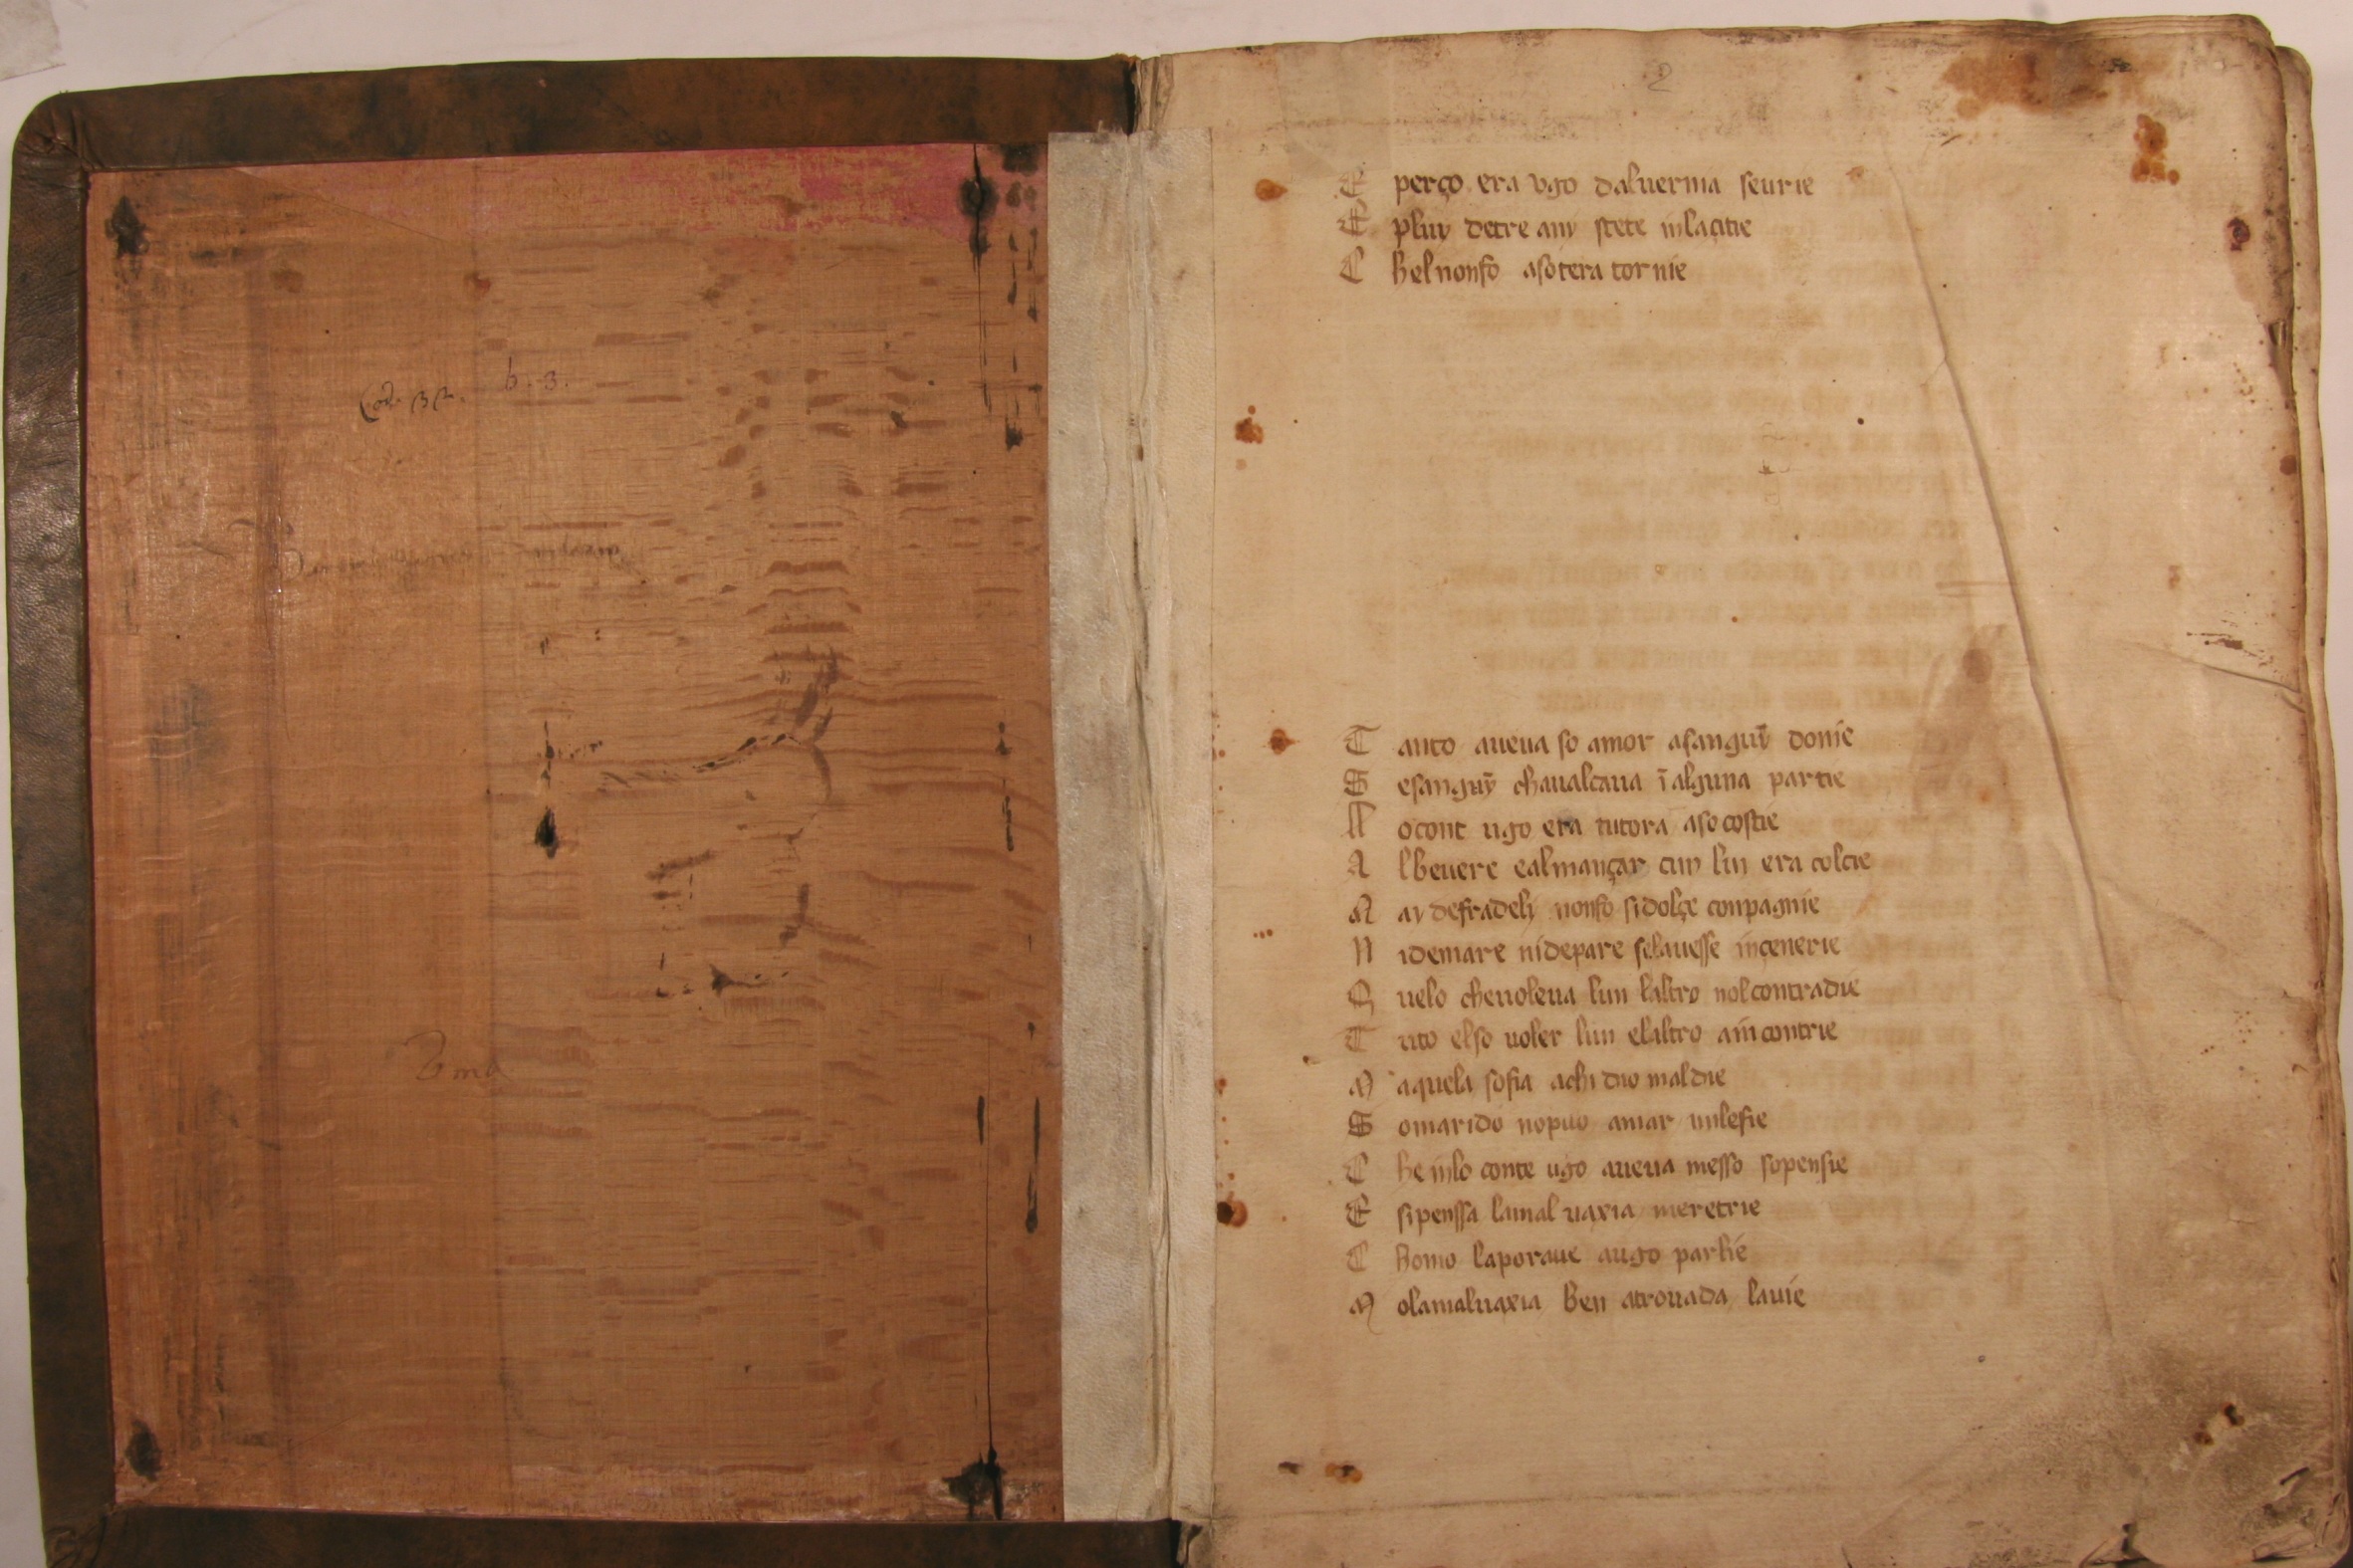 Cod. 32. b. 3.
2
E perço era vgo daluernia seurie
E pluy detre any stete inlacitie
C hel nonfo asotera tornie
T anto aueua so amor asanguī donie
S esanguȳ chaualcaua ī alguna partie
L o cont ugo era tutora aso costie
A lbeuere ealmançar cun lui era colcie
M ay defradely nonfo sidolçe conpagnie
N idemare nidepare selauesse inçenerie
Q uelo cheuoleua lun laltro nolcontradie
T uto elso uoler lun elaltro aincontrie
M aquela sofia achi duo maldie
S omarido nopuo amar unlesie
C he inlo conte ugo aueua messo sopensie
E sipenssa lamaluaxia meretrie
C homo laporaue augo parlie
M olamaluaxia ben atrouada lauie